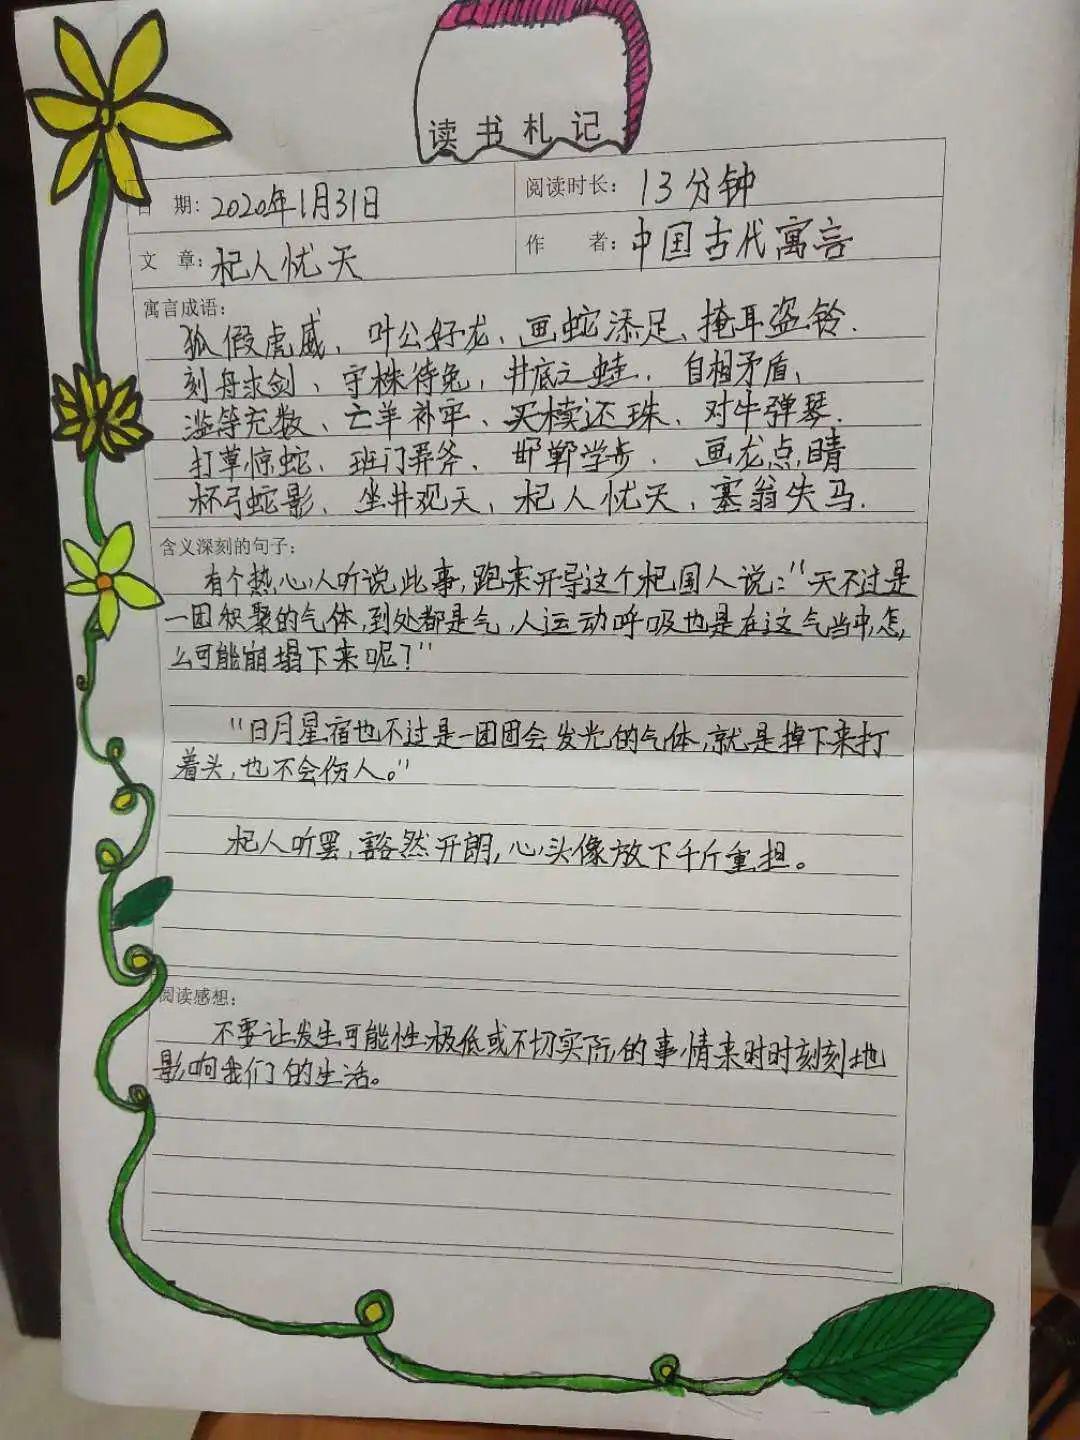 读书札记
日 期: 2020年1月31日 阅读时长: 13分钟
文 章: 杞人忧天 作 者: 中国古代寓言
寓言成语:
狐假虎威、叶公好龙、画蛇添足、掩耳盗铃.
刻舟求剑、守株待兔、井底之蛙、自相矛盾、
滥等充数、亡羊补牢、买椟还珠、对牛弹琴.
打草惊蛇、班门弄斧、邯郸学步、画龙点睛
杯弓蛇影、坐井观天、杞人忧天、塞翁失马.
含义深刻的句子:
有个热心人听说此事,跑来开导这个杞国人说:"天不过是
一团积聚的气体,到处都是气,人运动呼吸也是在这气当中,怎
么可能崩塌下来呢?"
"日月星宿也不过是一团团会发光的气体,就是掉下来打
着头,也不会伤人。"
杞人听罢,豁然开朗,心头像放下千斤重担。
阅读感想:
不要让发生可能性极低或不切实际的事情来时时刻刻地
影响我们的生活。